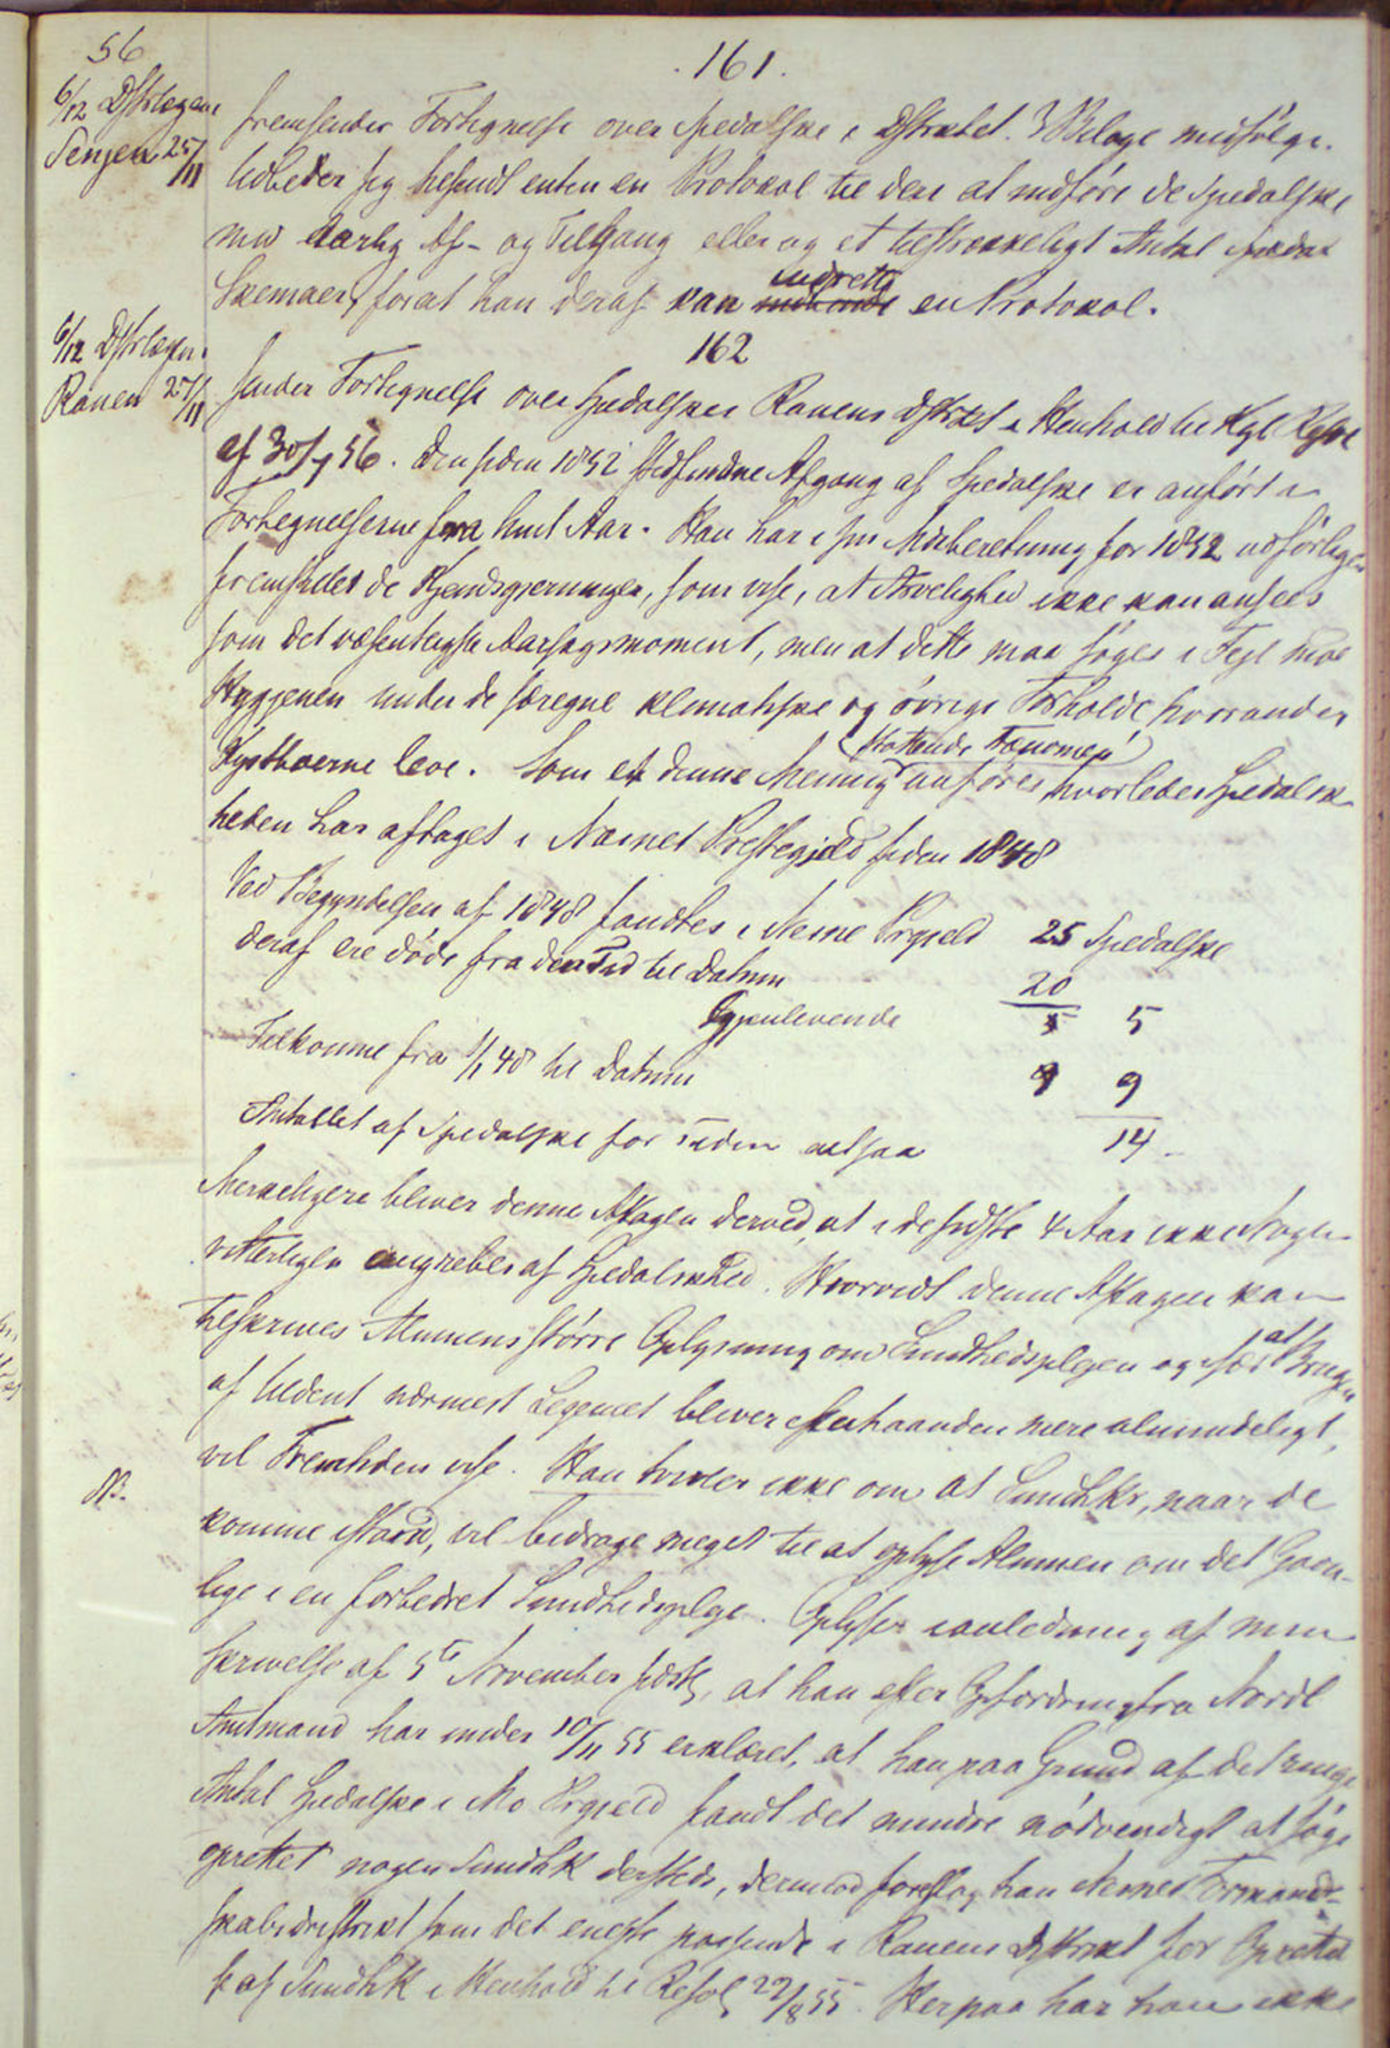 56
161.
6/12 Dstrlægen
Senjen 25/11
fremsender Fortegnelse over spedalske i Dstriktet. 3 Bilage medfølge.
Udbeder sig tilsendt enten en Protokol til deri at indføre de Spedalske
med Aarlig Af- og Tilgang eller og et tilstrækkeligt Antal
Skemaer, forat han deraf kan indrette en Protokol.
162
6/12 Dstrlægen
Ranen 27/11
sender Fortegnelse over spedalske i Ranens Dstrikt i Henhold til Kgl
af 30/7 56. Den siden 1852 stedfundne Afgang af Spedalske er anført i
Fortegnelserne fra hint Aar. Han har i sin Medberetning for 1852 udførligen
fremstillet de Kjendsgjerninger, som vise, at Arvelighed ikke kan ansees
som det væsentligste Aarsagsmoment, men at dette maa søges i Feil mod
Hygienen under de særegne klimatiske og øvrige Forholde, hvorunder
Kystboerne leve. Som et denne Mening støttende Fænomen anføres hvorledes Spedalsk-
heden har aftaget i Næsnes Prestegjeld siden 1848
Ved Begyndelsen af 1848 fandtes i Nesne Prgjeld 25 Spedalske
deraf ere døde fra den Tid til Datum 20
Igjenlevende 5 5
Tilkomne fra 1/1 48 til Datum 9 9
Antallet af Spedalske for Tiden altsaa 14
Mærkeligere bliver denne Aftagen derved, at i de sidste 4 Aar ikke Nogen
vitterligen angrebes af Spedalskhed. Hvorvidt denne Aftagen kan
tilskrives Almuens større Oplysning om Sundhedsplejen og især at Brugen
af Uldent nærmest Legemet bliver efterhaanden mere almindeligt,
vil Fremtiden vise. Han tvivler ikke om at Sundhk, naar de
NB.
komme istand, vil bidrage meget til at oplyse Almuen om det Gavn-
lige i en forbedret Sundhedspleje. Oplyser i anledning af min
Skrivelse af 5te November sidstl, at han efter Opfordring fra Nordl
Amtmand har under 10/11 55 erklæret, at han paa Grund af det ringe
Antal Spedalske i Mo Prgjeld fandt det mindre nødvendigt at søge
oprettet nogen Sundhk dersteds, derimod foreslog han Nesnes Formand-
skabsdistrikt som det eneste passende i Ranens Dstrikt for Oprettel
se af Sundhk i Henhold til Resol 22/8 55. Herpaa har han ikke